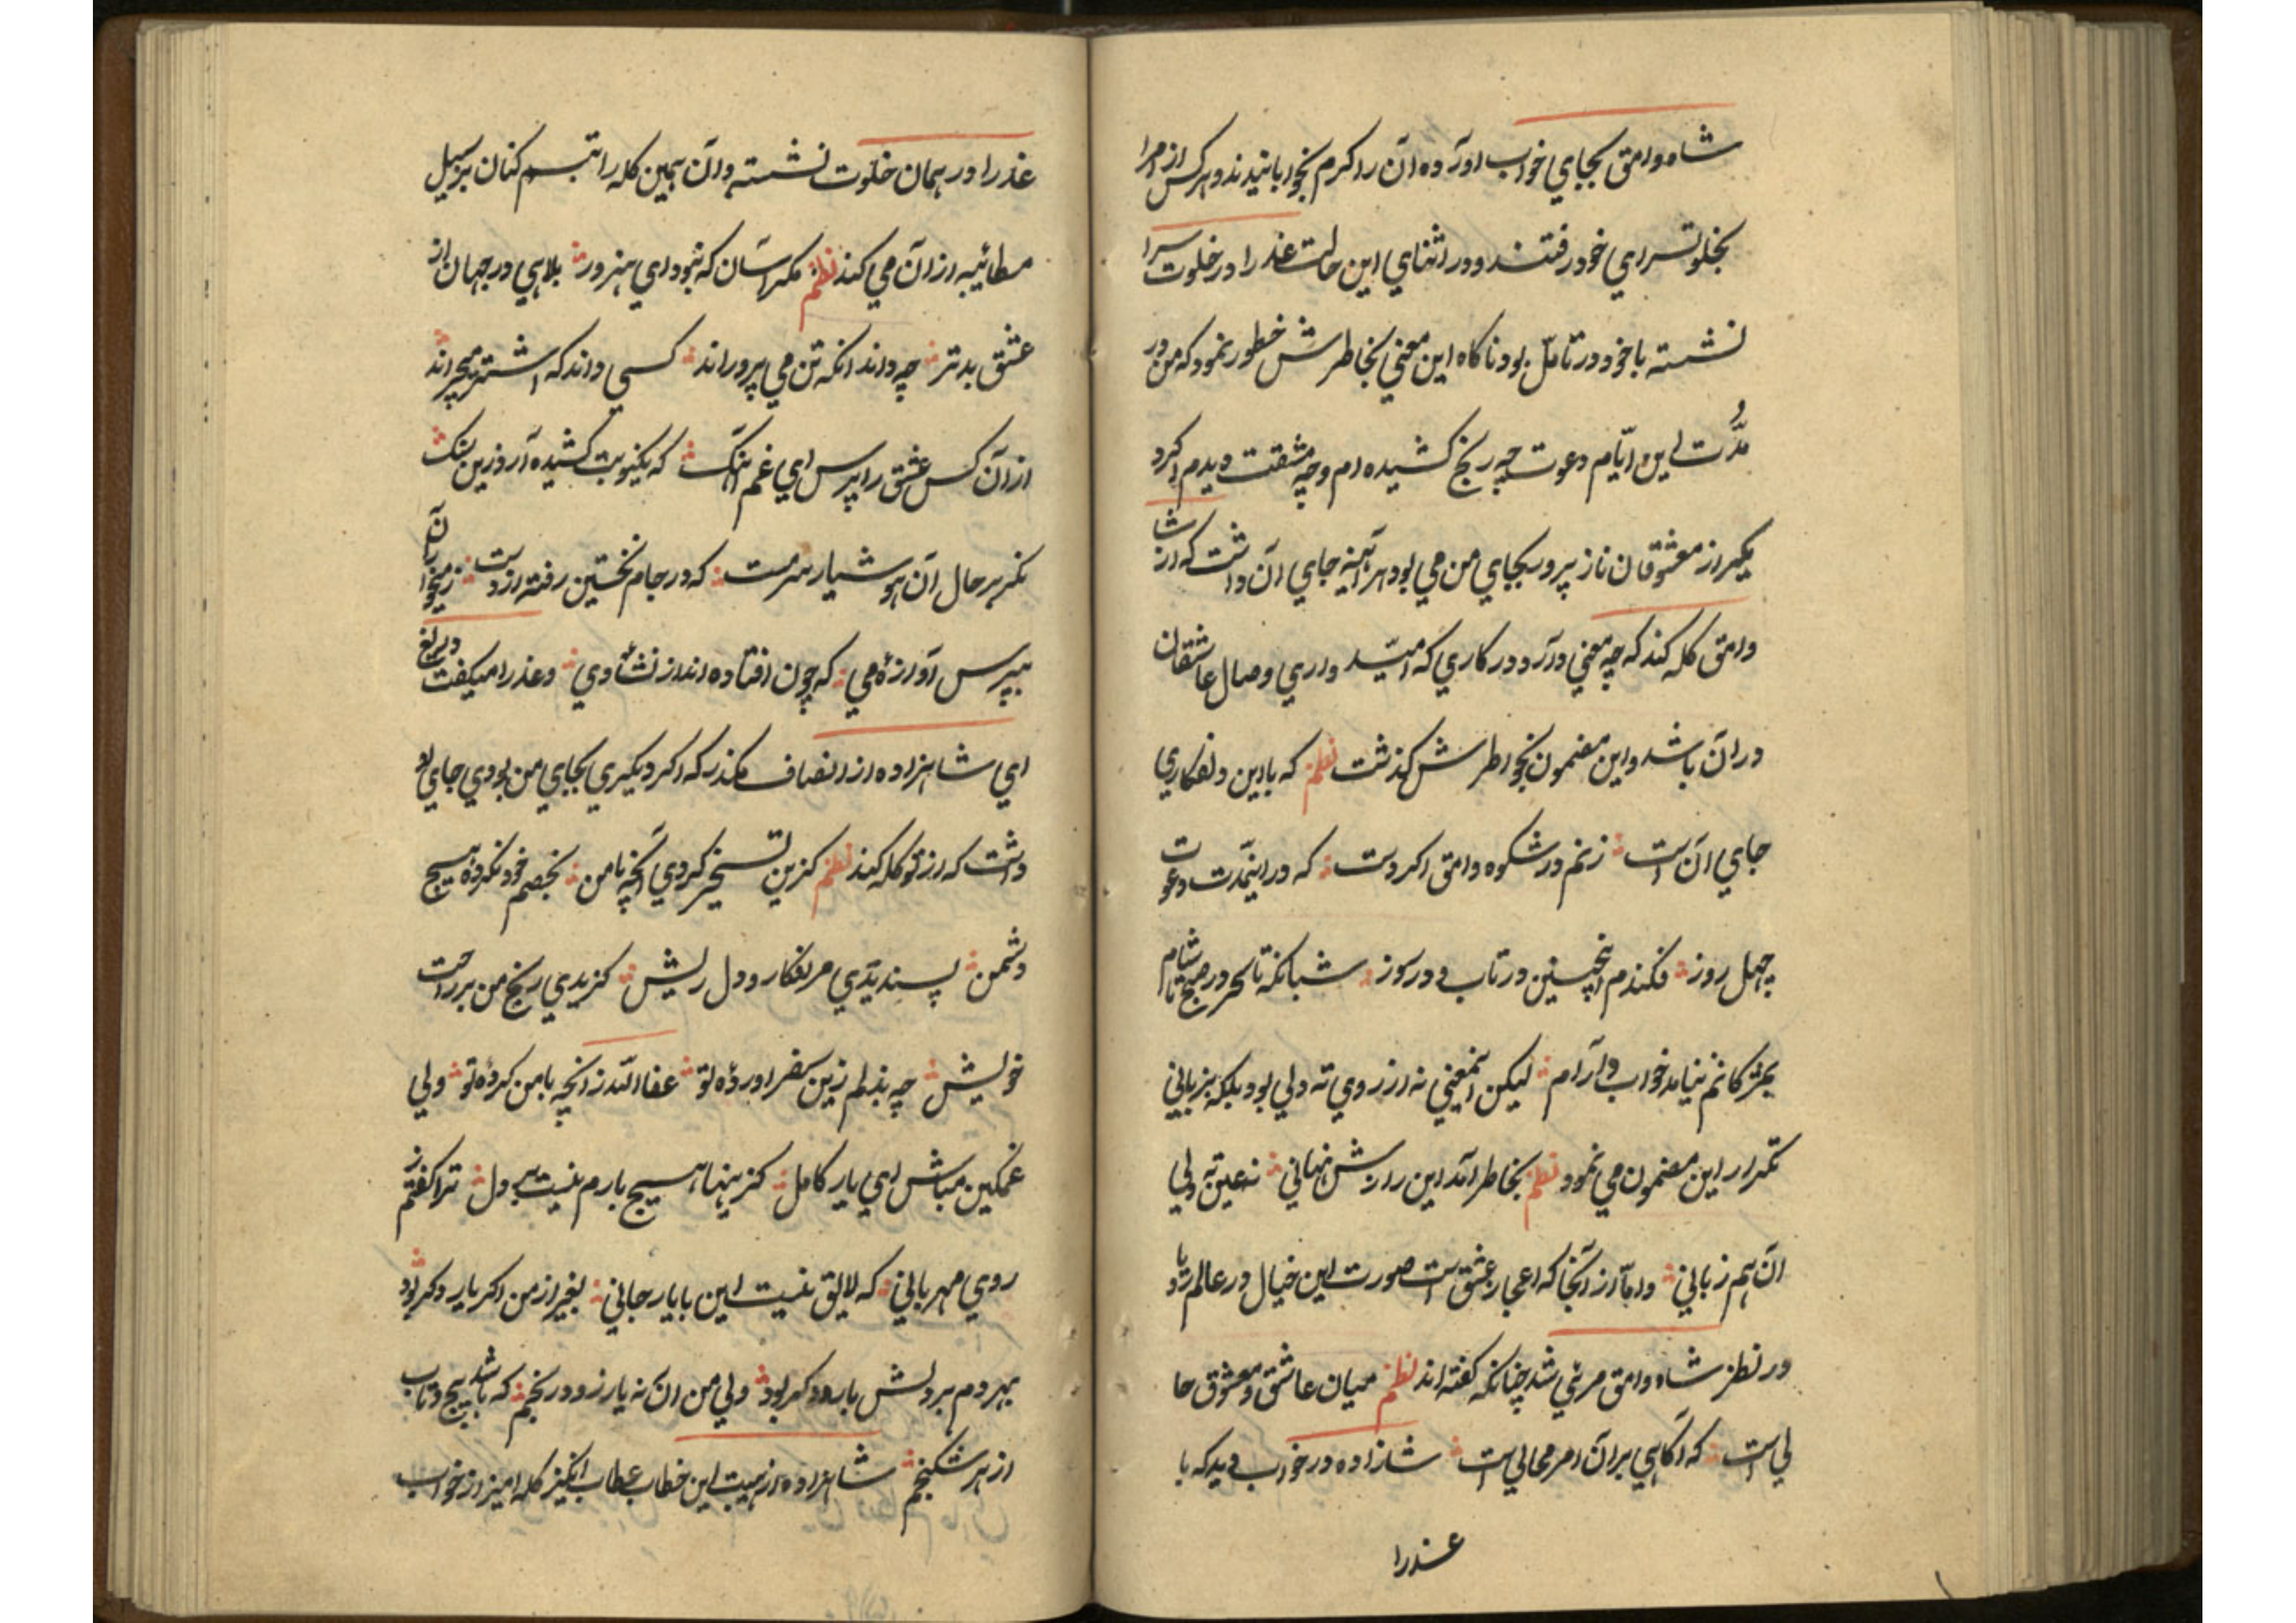 شاه وامق بجاي خواب اورده ان را كرم بخوابانيدند و هر كس از امرا
بخلوتسراي خود رفتند و در اثناي اين حالت عذرا در خلوت سرا
نشسته با خود در تامّل بود ناكاه اين معني بخاطرش خطور نمود كه من در
مدّت اين ايّام دعوت چه رنج كشيده ام و چه مشقت ديدم اكر د
يكر از معشوقان ناز پرور بجاي من مي بود هر آينه جاي ان داشت كه از شا
وامق كله كند كه چه معني دارد در كاري كه اميّد واري وصال عاشقان
در ان باشد و اين مضمون بخواطرش كذشت نظم كه با اين دلفكاري
جاي ان است زنم در شكوه وامق اكر دست كه در اينمدّت دعوت
چهل روز فكندم اينچنين در تاب و در سوز شبانكه تا سحر در صبح تا شام
بمژكانم نيامد خواب و آرام ليكن اينمعني نه از روي ته دلي بود بلكه بزباني
تكرار اين مضمون مي نمود نظم بخاطر آمد اين رازش نهاني نه عين ته دلي
ان هم زباني و امّا از آنجا كه اعجاز عشق است صورت اين خيال در عالم رؤيا
در نظر شاه وامق مرئي شد چنانكه كفته اند نظم ميان عاشق و معشوق حا
لي است كه آكاهي بر آن امر محالي است شازاده در خواب ديد كه با
عذرا
عذرا در همان خلوت نشسته و ان همين كله را تبسم كنان بر سبيل
مطائيبه از ان مي كند نظم مكو آسان كه نبود اي هنرور بلاهي در جهان از
عشق بدتر چه داند انكه تن مي پروراند كسي داند كه اشتر ميچراند
از ان كس عشق را پرس اي غم آهنك كه يكنوبت كشيده آرد زين سنك
نكر بر حال آن هوشيار سرمست كه در جام نخستين رفته از دست ز ميخواران
بپرس آوازه مي كه چون افتاده اند از نشأ وي و عذرا ميكفت دريغ
اي شاهزاده از انصاف مكذر كه اكر ديكيري بجاي من بودي جاي او
داشت كه از تو كله كند نظم كزين تسخير كردي آنچه با من بخصم خود نكرده هيچ
دشمن پسنديدي مرا فكار و دل ريش كزيدي رنج من بر راحت
خويش چه بد بدلم زين سفر اورده تو عفا الله ز انچه با من كرده تو ولي
غمكين مباش اي يار كامل كز ينها هيچ بارم نيست بر دل ترا كفتم ز
روي مهرباني كه لايق نيست اين با يار جاني بغير از من اكر يار دكر بود
بهر دم بر دلش بار دكر بود ولي من ان نه يار زود رنجم كه باشد پيچ و تاب
از هر شكنجم شاهزاده از هيبت اين خطاب عطاب انكيز كله اميز از خواب